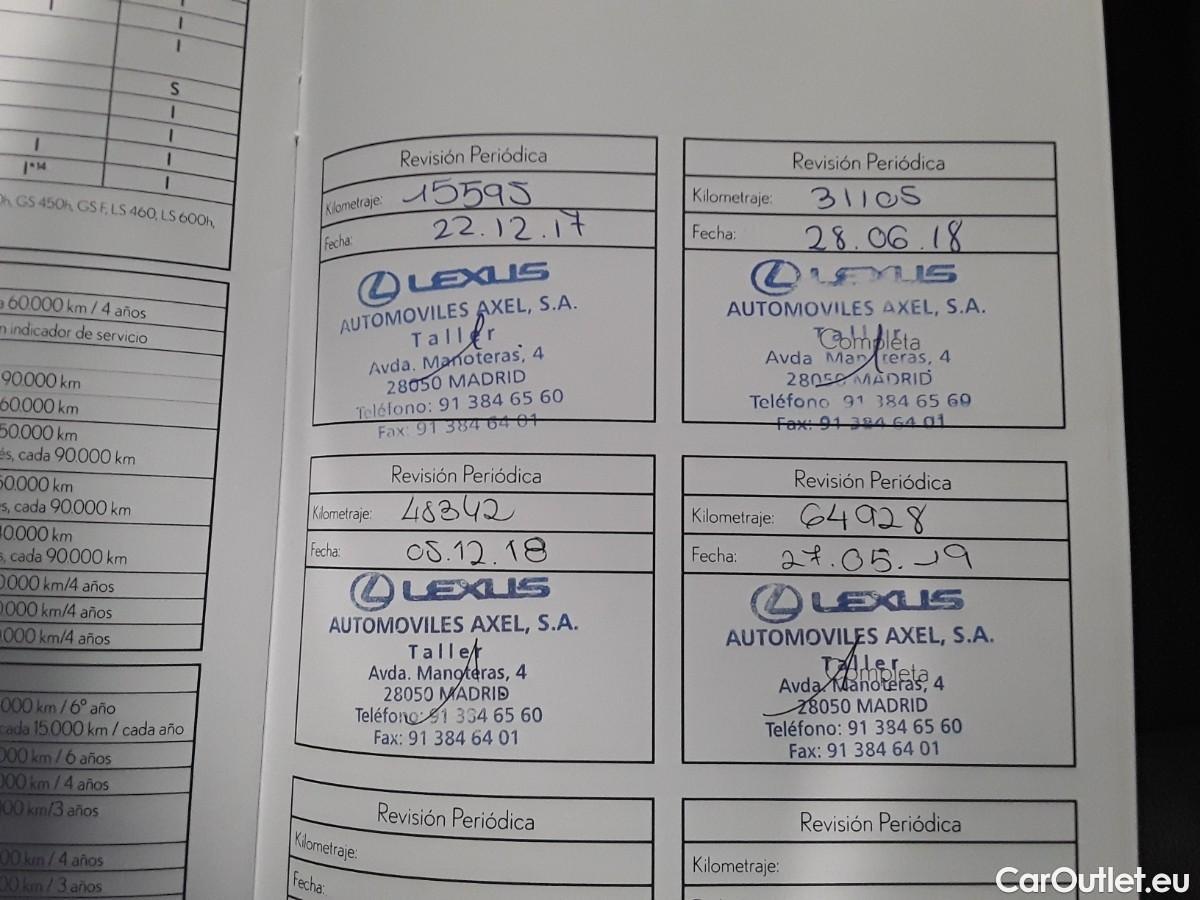 I
I
I
S
I
I
I
I
I*14
I
GS 450h, GS F, LS 460, LS 600h,
60.000 km / 4 años
indicador de servicio
90.000 km
60.000 km
cada 90.000 km
cada 90.000 km
cada 90.000 km
km/4 años
km/4 años
km/4 años
km / 6º año
cada 15.000 km / cada año
km / 6 años
km / 4 años
km/3 años
km / 4 años
km / 3 años
Revisión Periódica
Kilometraje: 15595
Fecha: 22.12.17
LEXUS
AUTOMOVILES AXEL, S.A.
Taller
Avda. Manoteras, 4
28050 MADRID
Teléfono: 91 384 65 60
Fax: 91 384 64 01
Revisión Periódica
Kilometraje: 31105
Fecha: 28.06.18
LEXUS
AUTOMOVILES AXEL, S.A.
Taller
Completa
Avda Manoteras, 4
28050 MADRID
Teléfono 91 384 65 60
Fax: 91 384 64 01
Revisión Periódica
Kilometraje: 48342
Fecha: 05.12.18
LEXUS
AUTOMOVILES AXEL, S.A.
Taller
Avda. Manoteras, 4
28050 MADRID
Teléfono: 91 384 65 60
Fax: 91 384 64 01
Revisión Periódica
Kilometraje: 64928
Fecha: 27.05.19
LEXUS
AUTOMOVILES AXEL, S.A.
Taller
Completa
Avda. Manoteras, 4
28050 MADRID
Teléfono: 91 384 65 60
Fax: 91 384 64 01
Revisión Periódica
Kilometraje:
Fecha:
Revisión Periódica
Kilometraje:
CarOutlet.eu